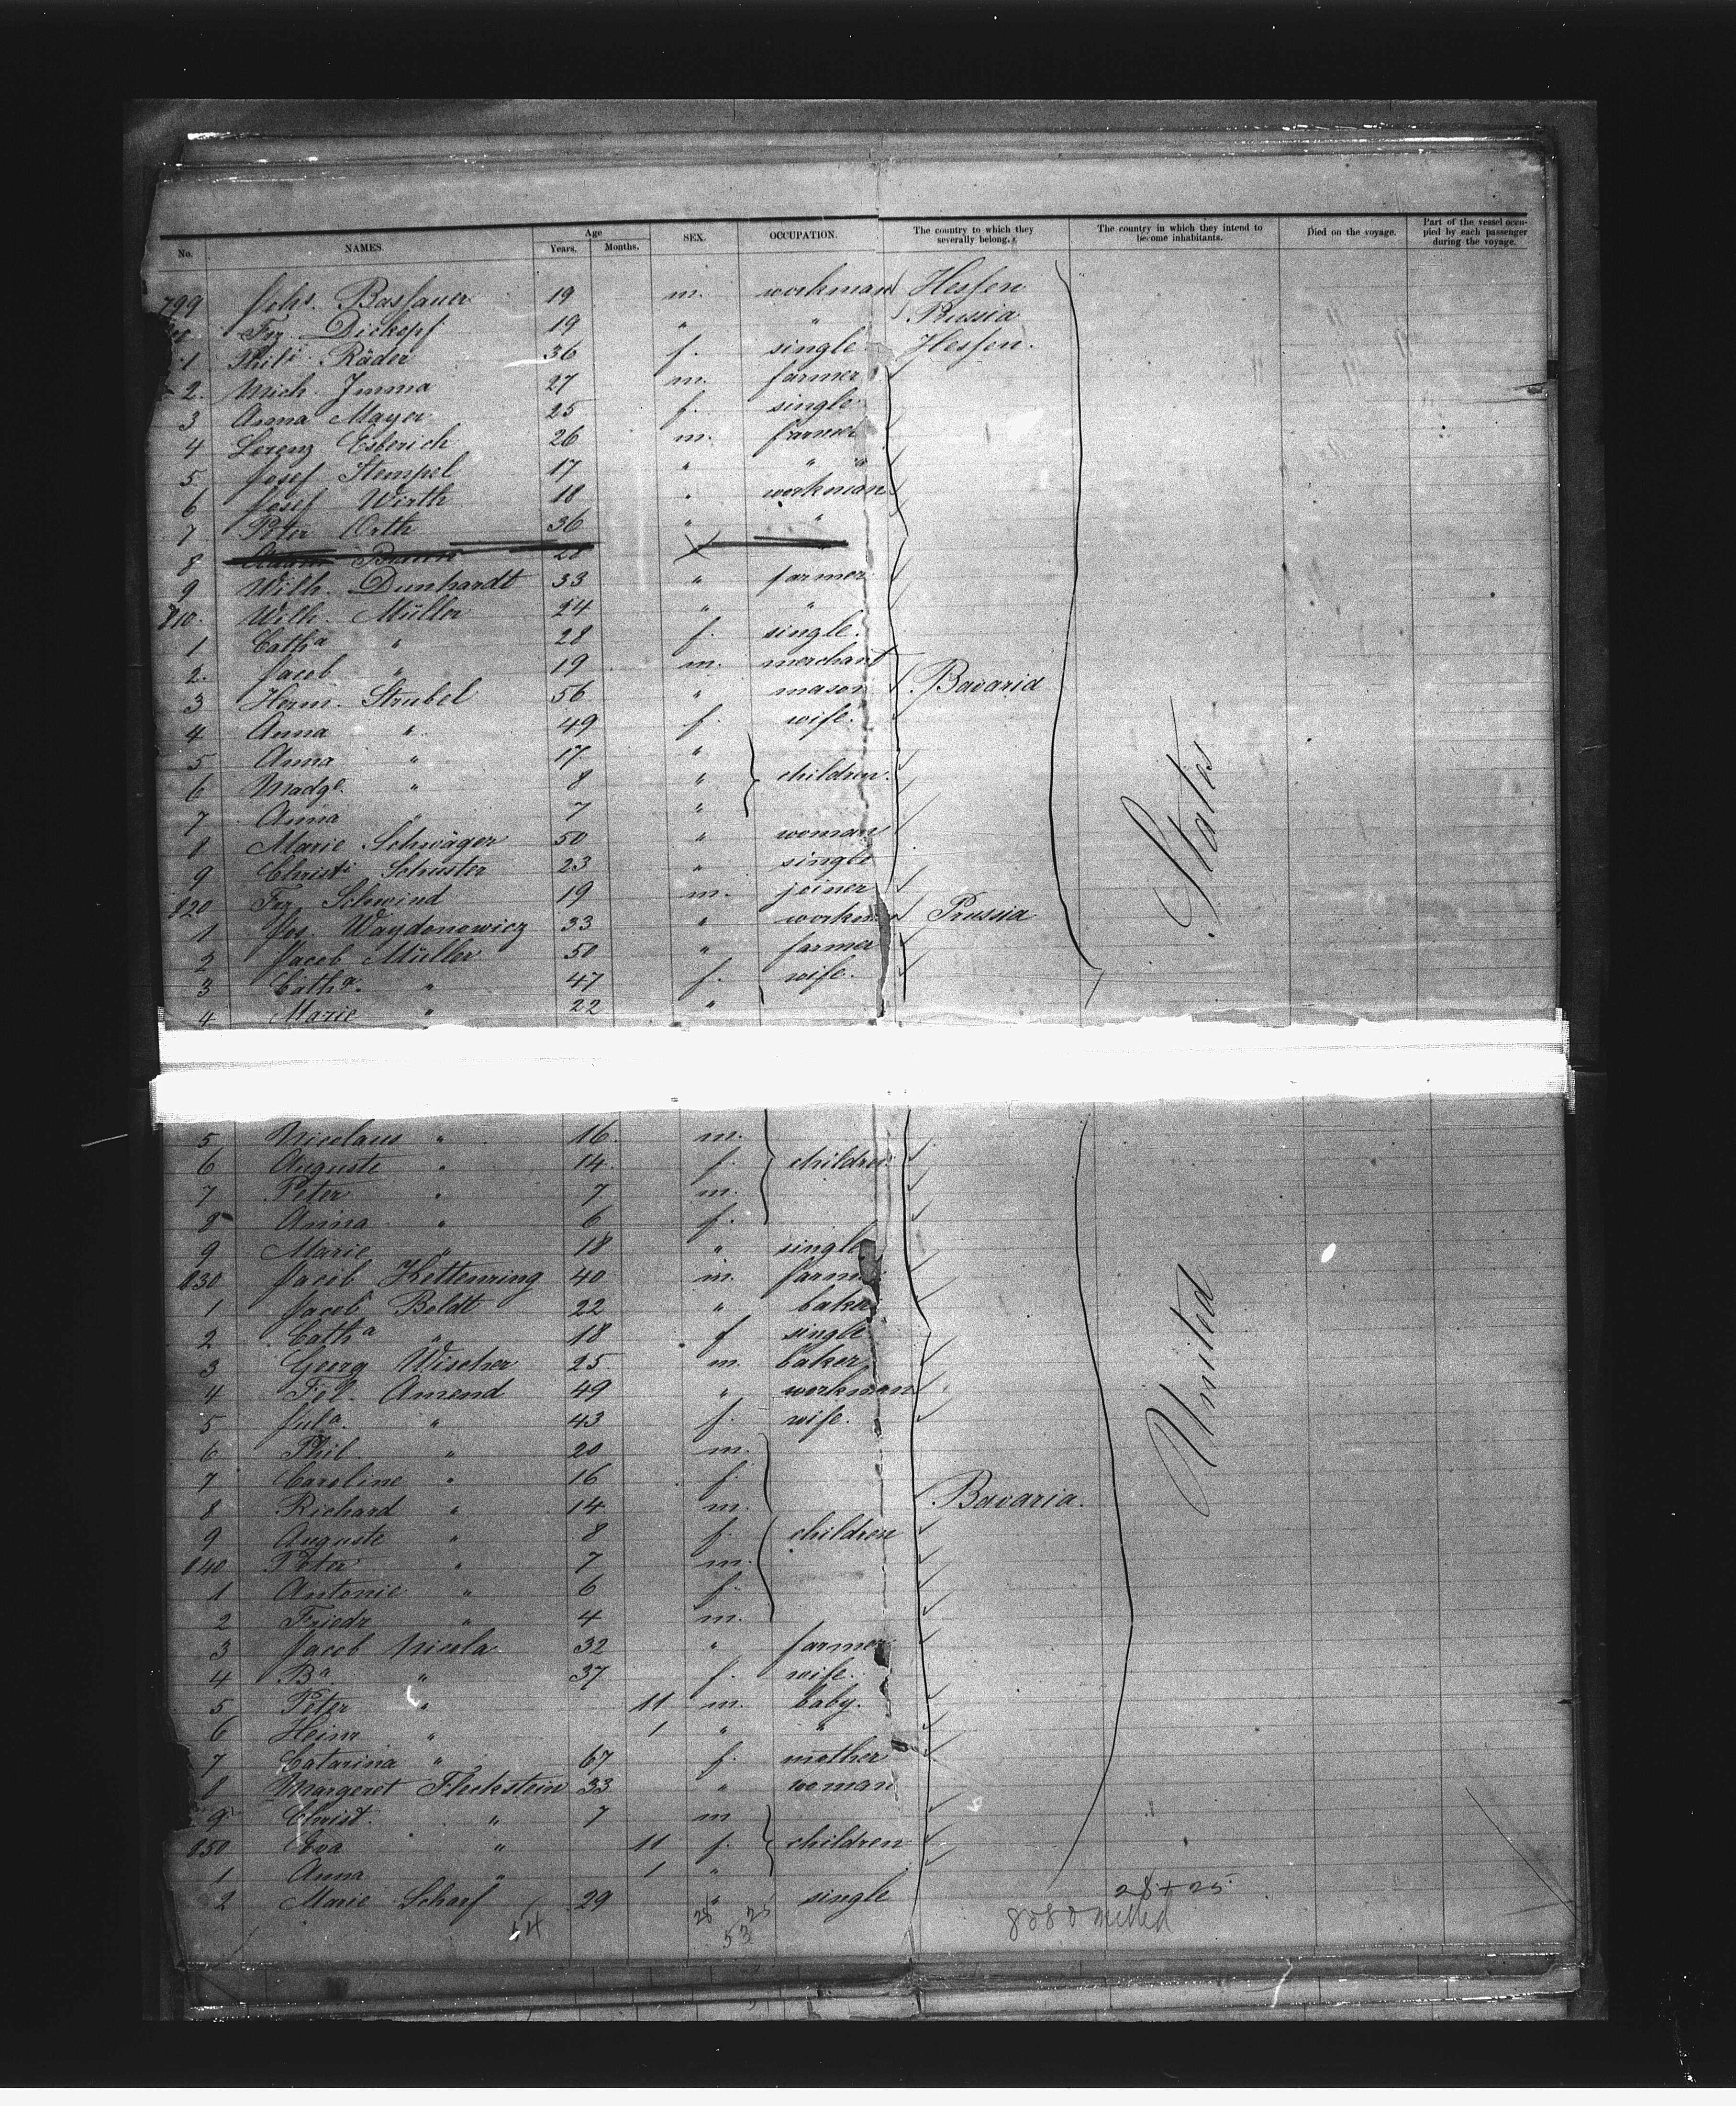 No. NAMES Age Years. Months. SEX. OCCUPATION. The country to which they severally belong. The country in which they intend to become inhabitants. Died on the voyage. Part of the vessel occupied by each passenger during the voyage.
799 Johs. Bassauer 19 m. workman Hessen
Frz Dickopf 19 " " Prussia
1 Phili Räder 36 f. single Hessen.
2. Mich. Imma 27 m. farmer
3 Anna Mayer 25 f. single
4 Lorenz Esterich 26 m. farmer
5 Josef Stempel 17 " " "
6 Josef Wirth 18 " workman
7 Peter Orth 36 " "
8 Adam Braun 28
9 Wilh. Dunhardt 33 " farmer
810. Wilh. Müller 24 " "
1 Catha " 28 f. single.
2. Jacob " 19 m. merchant
3 Herm. Strubel 56 " mason Bavaria
4 Anna " 49 f. wife.
5 Anna " 17 "
6 Madge. " 8 " children.
7 Anna " 7 "
8 Marie Schwäger 50 " woman
9 Christi Schuster 23 " single
820 Frz Schwind 19 m. joiner
1 Jos. Waydonowicz 33 " workman Prussia
2 Jacob Müller 50 " farmer
3 Catha. " 47 f. wife.
4 Marie " 22 "
States
5 Nicolaus " 16. m.
6 Auguste " 14. f. children
7 Peter " 7 m.
8 Anna " 6 f.
9 Marie " 18 " single
830 Jacob Kettenring 40 m. farm
1 Jacob Boldt 22 " baker
2 Catha " 18 f single
3 Georg Wischer 25 m. baker
4 Fél. Amend 49 " workman
5 Jula. " 43 f. wife.
6 Phil. " 20 m.
7 Caroline " 16 f.
8 Richard " 14 m. Bavaria.
9 Auguste " 8 f. children
840 Peter " 7 m.
1 Antonie " 6 f.
2 Friedr " 4 m.
3 Jacob Nicola 32 " farmer
4 Ba " 37 f. wife.
5 Peter " 11 m. baby.
6 Heinr " 1 " "
7 Catarina " 67 f. mother
8 Margeret Fleckstein 33 " woman
9 Christ. " 7 m
850 Eva " 11 f. children
1 Anna " 1 "
2 Marie Scharf 29 " single
United
28 + 25
54 28 25
53